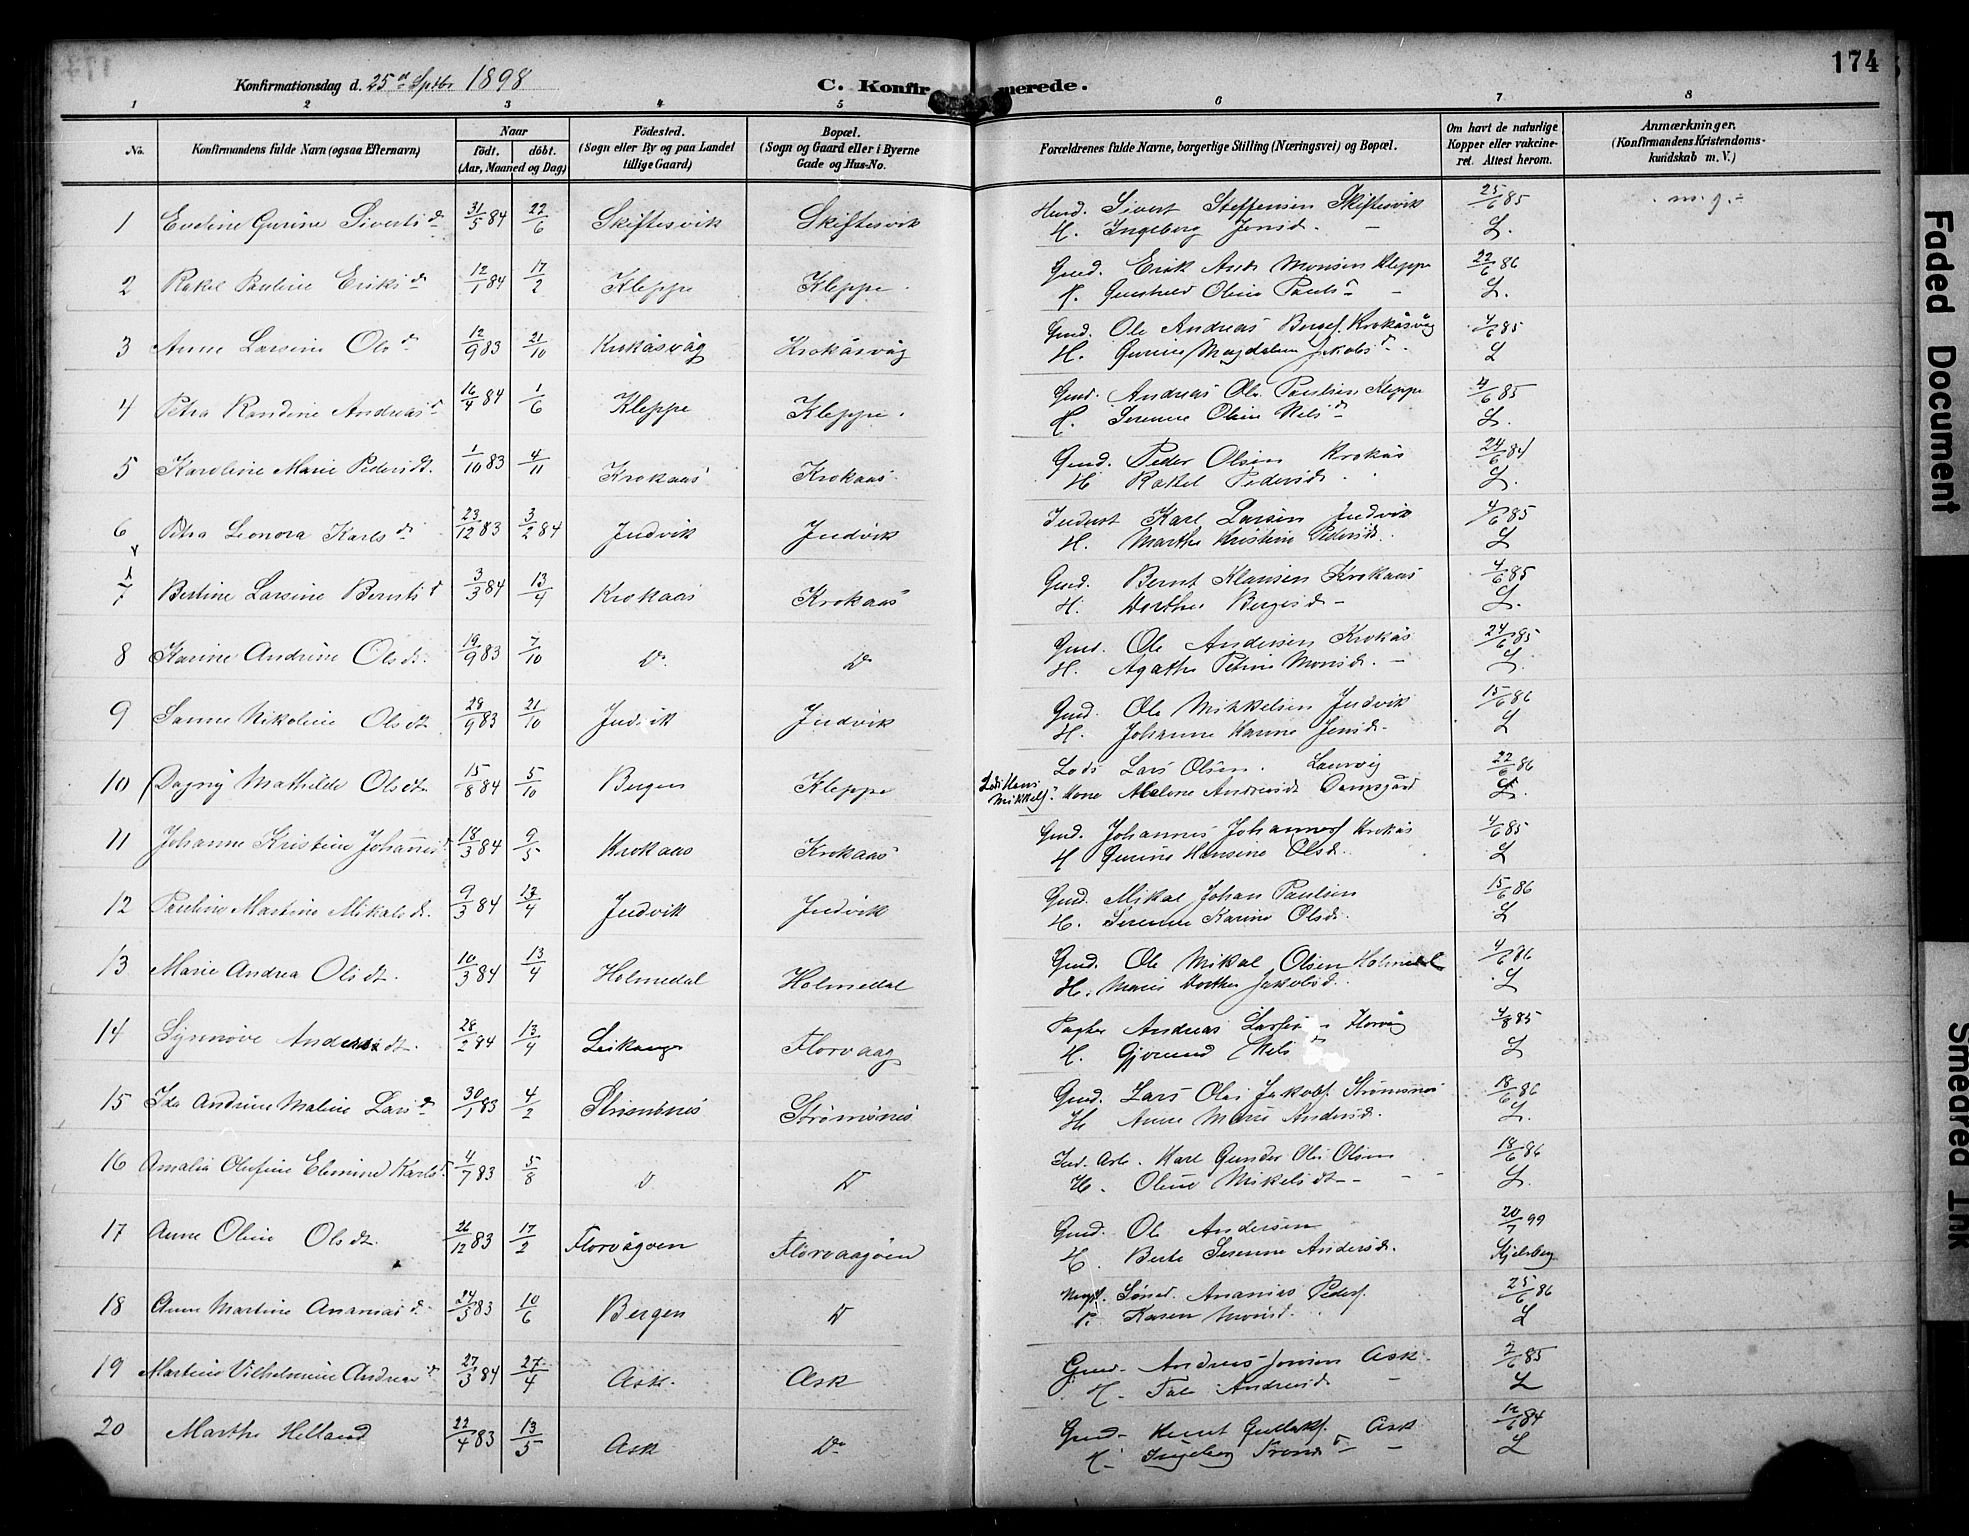 174
Konfirmationsdag d. 25de Septbr 1898
C. Konfirmerede.
1 2 3 4 5 6 7 8
No.
Konfirmandens fulde Navn (ogsaa Efternavn)
Naar
født. døbt.
(Aar, Maaned og Dag)
Fødested.
(Sogn eller By og paa Landet
tillige Gaard)
Bopæl.
(Sogn og Gaard eller i Byerne
Gade og Hus-No.
Forældrenes fulde Navne, borgerlige Stilling (Næringsvei) og Bopæl.
Om havt de naturlige
Kopper eller vakcine-
ret. Attest herom.
Anmærkninger.
(Konfirmandens Kristendoms-
kundskab m. V.)
1 Eveline Gurine Siverts d. 31/5 84 22/6 Skiftesvik Skiftesvik Sivert Steffensen Skiftesvik 25/6 85 m.g.
H. Ingeborg Jensd. - L.
2 Rakel Pauline Eriks d. 12/1 84 17/2 Kleppe Kleppe Gmd. Erik Andr. Monsen Kleppe 22/6 86
H. Gunhild Oline Pauls d. - L.
3 Anne Larsine Ols d. 12/9 83 21/10 Krokåsvåg Krokåsvåg Gmd. Ole Andreas Krokåsvåg 4/6 85
H. Gurine Magdalena Jakobs d. L
4 Petra Randine Andreas d. 16/4 84 1/6 Kleppe Kleppe Gmd. Andreas Ole Paulsen Kleppe 4/6 85
H. Serenne Oline Nels d. L.
5 Karoline Marie Pedersdt. 1/10 83 4/11 Krokaas Krokaas Gmd. Peder Olsen Krokås 24/6 84
H Rakel Pedersd. L.
6 Petra Leonora Karls d. 23/12 83 3/2 84 Indvik Indvik Inderst Karl Larsen Indvik 4/6 85
H. Marthe Kristine Pedersd. L
7 Bertine Larsine Bernts d. 3/3 84 13/4 Krokaas Krokaas Gmd. Bernt Klausen Krokaas 4/6 85
H. Dorthea Bergesd. - L.
8 Karine Andrine Olsdt. 19/9 83 7/10 Do Do Gmd. Ole Andersen Krokås 24/6 85
H. Agathe Petrine Monsd. - L.
9 Sanne Nikoline Olsdt 28/9 83 21/10 Indvik Indvik Gmd. Ole Mikkelsen Indvik 15/6 86
H. Johanne Karine Jensd. L
10 Dagny Mathilde Olsdt. 15/8 84 5/10 Bergen Kleppe Lods Lars Olsen. Laurvig 22/6 86
Lods Hans
Mikkels. Kone Malene Andersd. Damsgård L.
11 Johanne Kristine Johannesd. 18/3 84 9/5 Krokaas Krokaas Gmd. Johannes Johannes. Krokås 4/6 85
H Gurine Hansine Olsd. L
12 Pauline Martine Mikalsdt. 9/3 84 13/4 Indvik Indvik Gmd. Mikal Johan Paulsen 15/6 86
H. Serenne Karine Olsd. L
13 Marie Andrea Olsdt. 10/3 84 13/4 Holmedal Holmedal Gmd. Ole Mikal Olsen Holmedal 4/6 86
H. Marie Dorthea Jakobsd. L
14 Synnøve Andersdt. 28/2 84 13/4 Leikanger Florvaag Andreas Florvåg 4/8 85
H. Gjørund Nels d. L
15 Ida Andrine Maline Lars d. 30/1 83 4/2 Strømsnes Strømsnes Gmd. Lars Olai Jakobs. Strømsnes 18/6 86
H Anne Marie Andersd. L.
16 Amalia Olufine Elemine Karls d. 4/7 83 5/8 D D Ind. Arb. Karl Gunder Ole Olsen 18/6 86
H. Oline Mikelsdt. - L.
17 Anne Oline Olsdt. 26/12 83 17/2 Florvågøen Florvaagøen Gmd. Ole Andersen 20/7 99
H. Berte Serenne Andersd. Kjelsberg
18 Anne Martine Ananias d. 24/3 83 10/6 Bergen D Ananias Peders. 25/6 86
Karen Monsd. L
19 Martine Vilhelmine Andreas d. 27/3 84 27/4 Ask. Ask Gmd. Andreas Jonsen Ask 2/6 85
H. Andreasd. - L
20 Marthe Helland 22/4 83 13/5 Ask Do Gmd. Knut Gullaks. Ask 12/6 84
H. Ingeborg - L
Faded Document
Smeared Ink